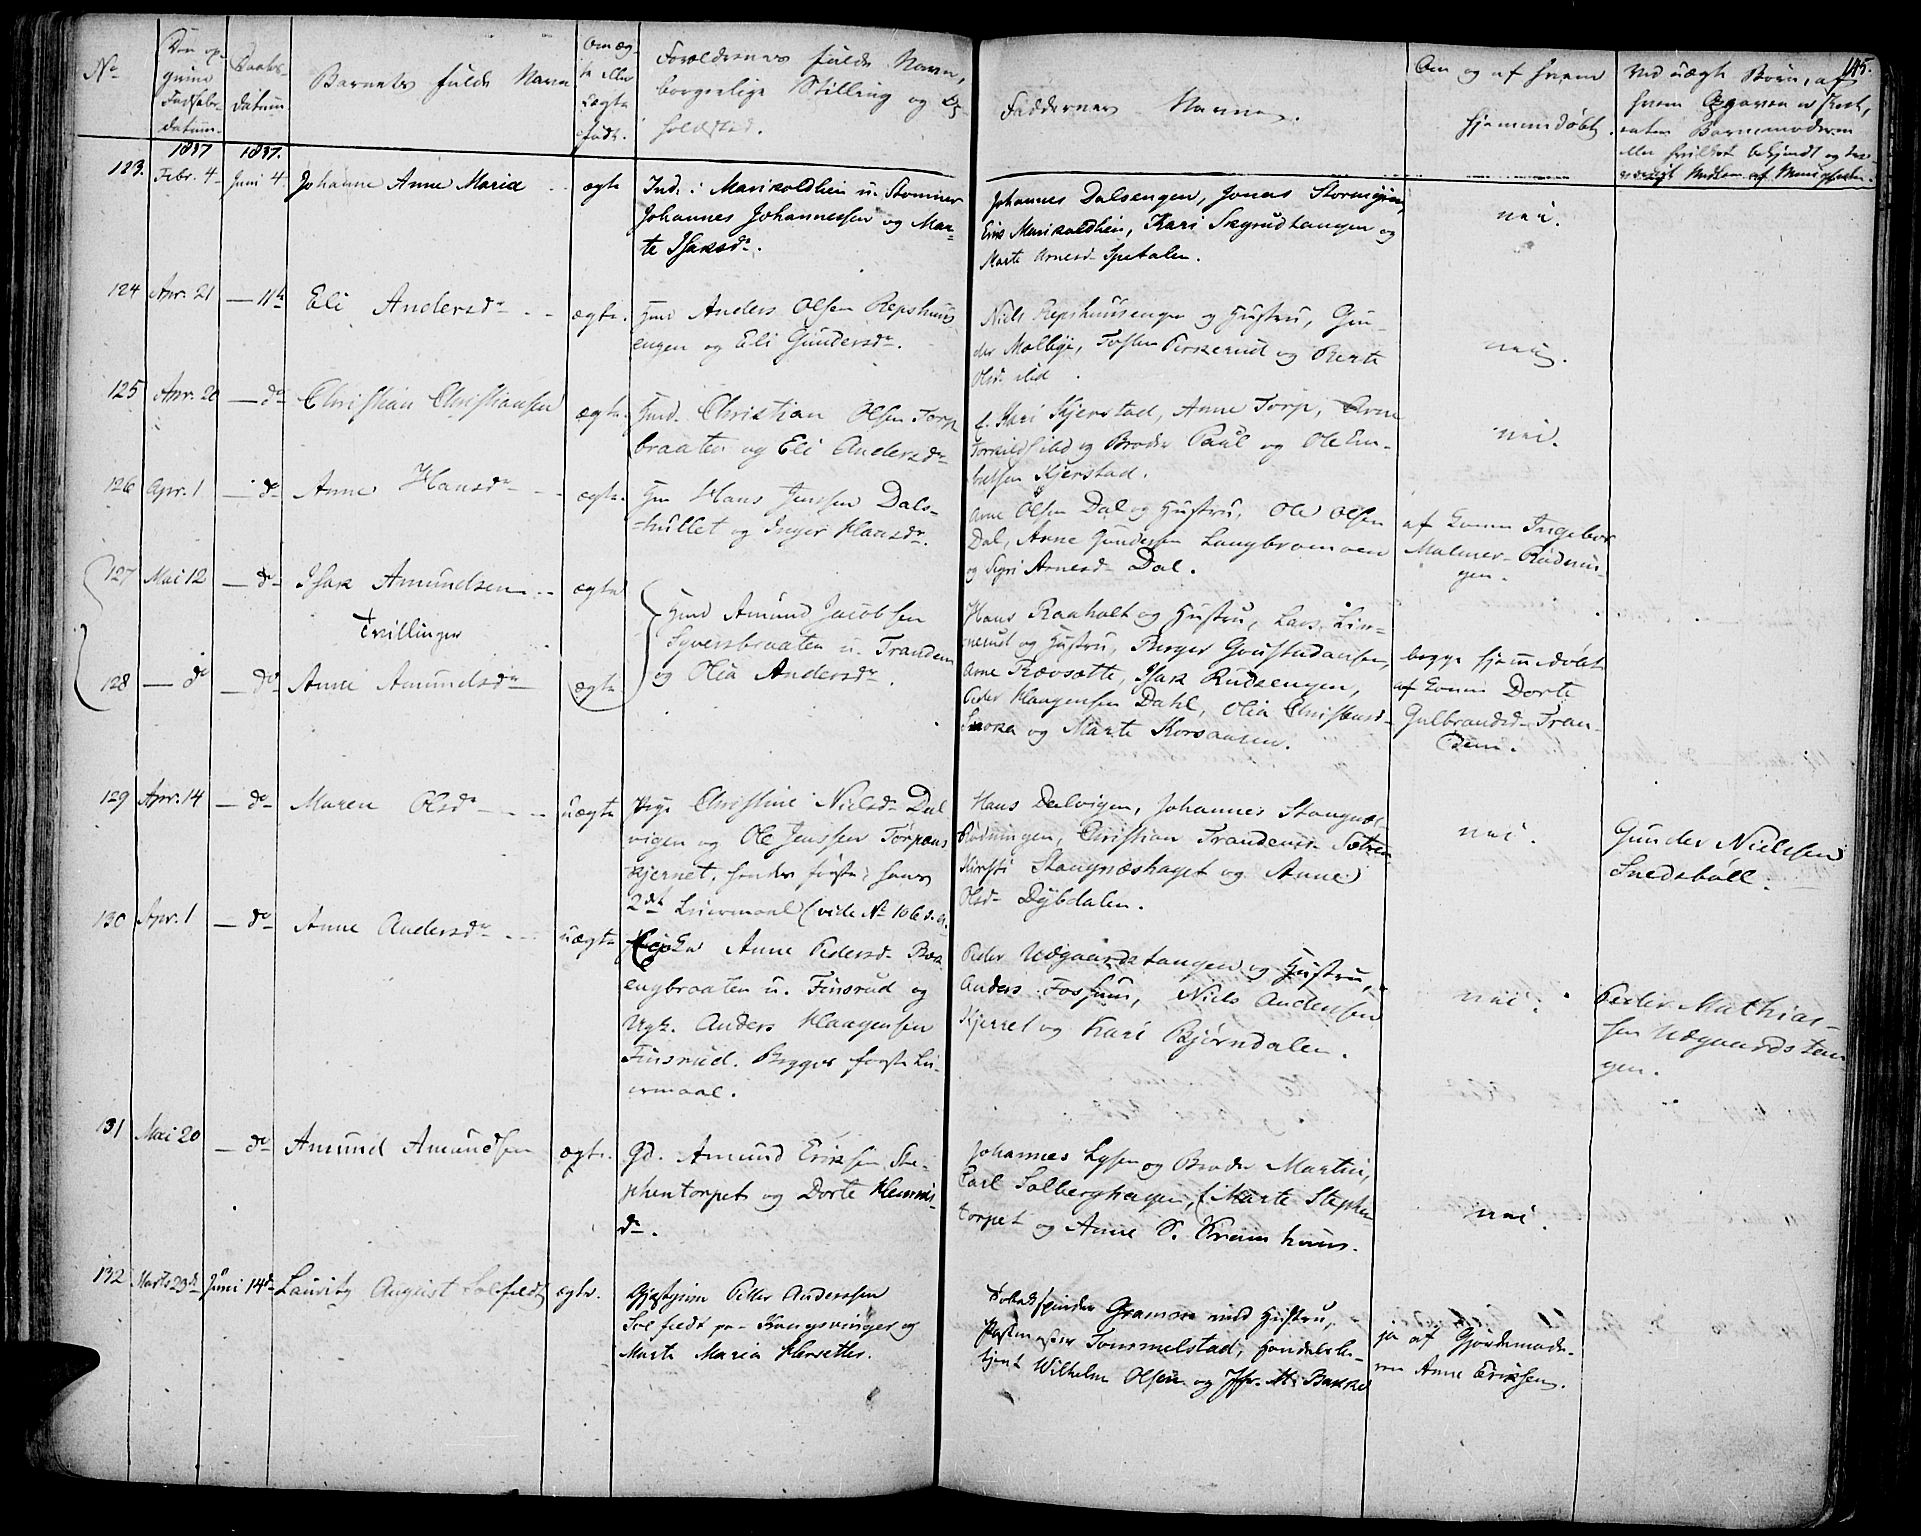 145.
No
Den op-
givne
Fødsels-
datum.
Daabs-
datum
Barnets fulde Navn
Om æg-
te eller
uægte
født.
Forældrenes fulde Navn,
borgerlige Stilling og Op-
holdsted.
Faddernes Navne.
Om og af hvem
hjemmedøbt.
Ved uægte Børn, af
hvem Opgaven er skeet,
enten Barnemoderen
eller hvilket bekjendt og tro-
værdigt Medlem af Menigheden.
1837 1837.
123. Febr. 4 Juni 4 Johanne Anne Maria ægte
Ind. i Marikoldhein u. Stommer
Johannes Johannessen og Mar-
te Isaksdr.
Johannes Dalsengen, Jonas
Erik Marikoldhein, Kari Skyrudtangen og
Marte Arnesd. Spetalen.
nei.
124 Apr. 21 — 11te Eli Andersdr ægte.
Hmd Anders Olsen Repshuus
engen og Eli Gundersdr.
Niels Repshuusengen og Hustru, Gun-
der Molbye, Tosten Perkerud og Berte
Olsd.
nei.
125 Apr. 20 — do Christian Christiansen ægte.
Hmd. Christian Olsen Torp
braaten og Eli Andersdr
f. Kari Kjerstad, Anne Torp, Arne
og Broder Paul og Ole Em-
bretsen Kjerstad.
nei.
126 Apr. 1 — do Anne Hansdr ægte.
Hmd Hans Jensen Dals-
hullet og Inger Hansdr.
Arne Olsen Dal og Hustru, Ole Olsen
Dal, Arne Gundersen Langbramoen
og Sigri Arnesd. Dal.
af Konen Ingebor
Malmer-Rødnin-
gen.
127 Mai 12 — do Isak Amundsen ægte
Tvillinger
128 — do — do Anne Amundsdr ægte
Hmd Amund Jacobsen
Syversbraaten u. Trandem
og Olia Andersdr.
Hans Raaholt og Hustru, Lars Lin-
nerud og Hustru, Berger
Arne Rævsætte, Isak Rudsengen,
Peder Haagensen Dahl, Olia Christensd.
og Marte Korsansen.
begge hjemmedøbt
af Konen Dorte
Gulbrandsd. Tran-
dem.
129 Apr. 14 — do Maren Olsdr uægte
Pige Christine Nielsd. Dal
vigen og Ole Jensen Torpens
kjernet, hendes første, hans
2det Leiermaal (vide No 106 d. A.
Hans Dalvigen, Johannes Stangnæs
Rødningen, Christian Trandems Sætren
Kirsti Stangnæshaget og Anne
Olsd. Dybdalen.
nei.
Gunder Nielsen
Snedsbøll.
130 Apr. 1 — do Anne Andersdr uægte
Anne Pedersd. Bæk
engbraaten u. Finsrud og
Ugk. Anders Haagensen
Finsrud. Begges første Lei-
ermaal.
Peder Udgaardstangen og Hustru,
Anders Fossum, Niels Andersen
Kjerret og Kari Bjørndalen.
nei.
Peder Mathias-
sen Udgaardstan
gen.
131 Mai 20 — do Amund Amundsen ægte.
Gd. Amund Eriksen Ste-
phentorpet og Dorte Henriks
dr.
Johannes Lysen og Broder Martin,
Carl Solberghagen, f. Marte Stephen
torpet og Anne S. huus.
nei.
132 Marts 23de Juni 14de Lauritz August Solfeldt ægte.
Gjæstgiver Peter Anderssen
Solfeldt paa Kongsvinger og
Marte Maria Hersetter.
Tobakspinder Gramon med Hustru,
Postmester Tommelstad, Handelsbe-
tjent Wilhelm Olsen og Jfr. M. Bakke
ja af Gjordemode-
ren Anne Eriksen.